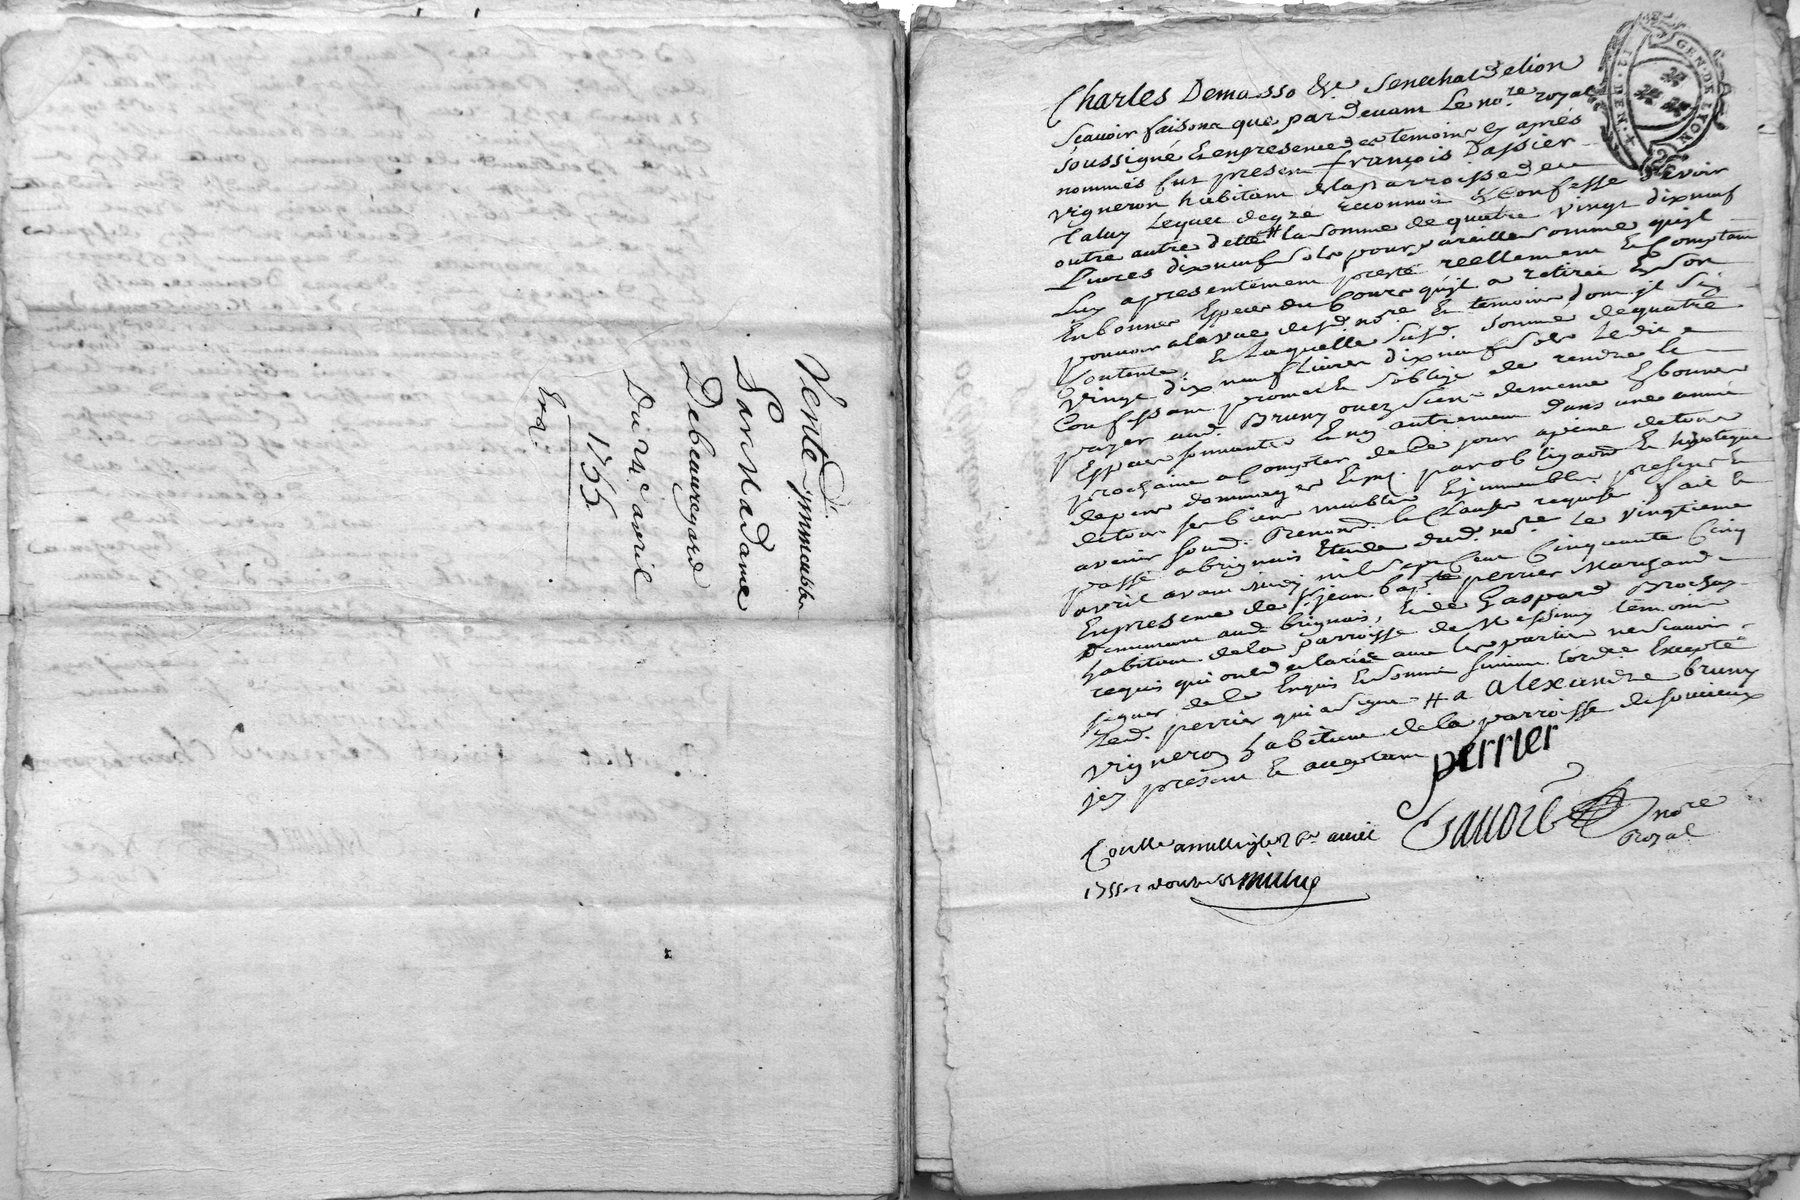 Vente d'immeubles
Par Madame
Debeauregard
Du 24e avril
1755
Charles Demasso &c. Senechal de lion
Scavoir faisons que par devant Le nore. royal
soussigné & en presence des temoins cy après
nommés fut present françois Dassier
vigneron habitant de la parroisse de
taluy Lequel de gré reconnoit & Confesse devoir
outre autre dette # la somme de quatre vingt dixneuf
Livres dixneuf sols pour pareille somme quil
Luy a presentement presté reellement & Comptant
En bonnes Especes du Cours quil a retiré & En son
pouvoir a la vue dud. nore. & temoins dont jl S'est
Contenté, & Laquelle susd. somme de quatre
Vingt dix neuf Livres dix neuf sols Le dit
Confessant promet & s'oblige de rendre &
payer aud. Bruny ou es siens de meme & bonnes
Especes sonnantes & non autrement dans une année
prochaine a Compter de Ce jour a peine de tous
depens dommages & par obligaon. & hypoteque
de tous ses biens meubles & jmmeubles presents &
avenir soud. Renond. & Clauses requises fait &
passé a brignais Etude dud. nore. Le vingtieme
avril avant midy mil sept Cent Cinquante Cinq
En presence de sr. jean bapte. perrier Marchand
Demeurant aud. brignais, & de Gaspard Brochay
habitant de la Parroisse de Messimy temoins
requis qui ont declaré avec les parties ne scavoir
signer de Ce Enquis & sommé suivant L'ordce Excepté
Led. perrier qui a signé # a alexandre bruny
vigneron habitant de la parroisse de soucieux
jcy present & acceptant
perrier
nore
Royal
GEN. DE LYON
12. DEN. 4.